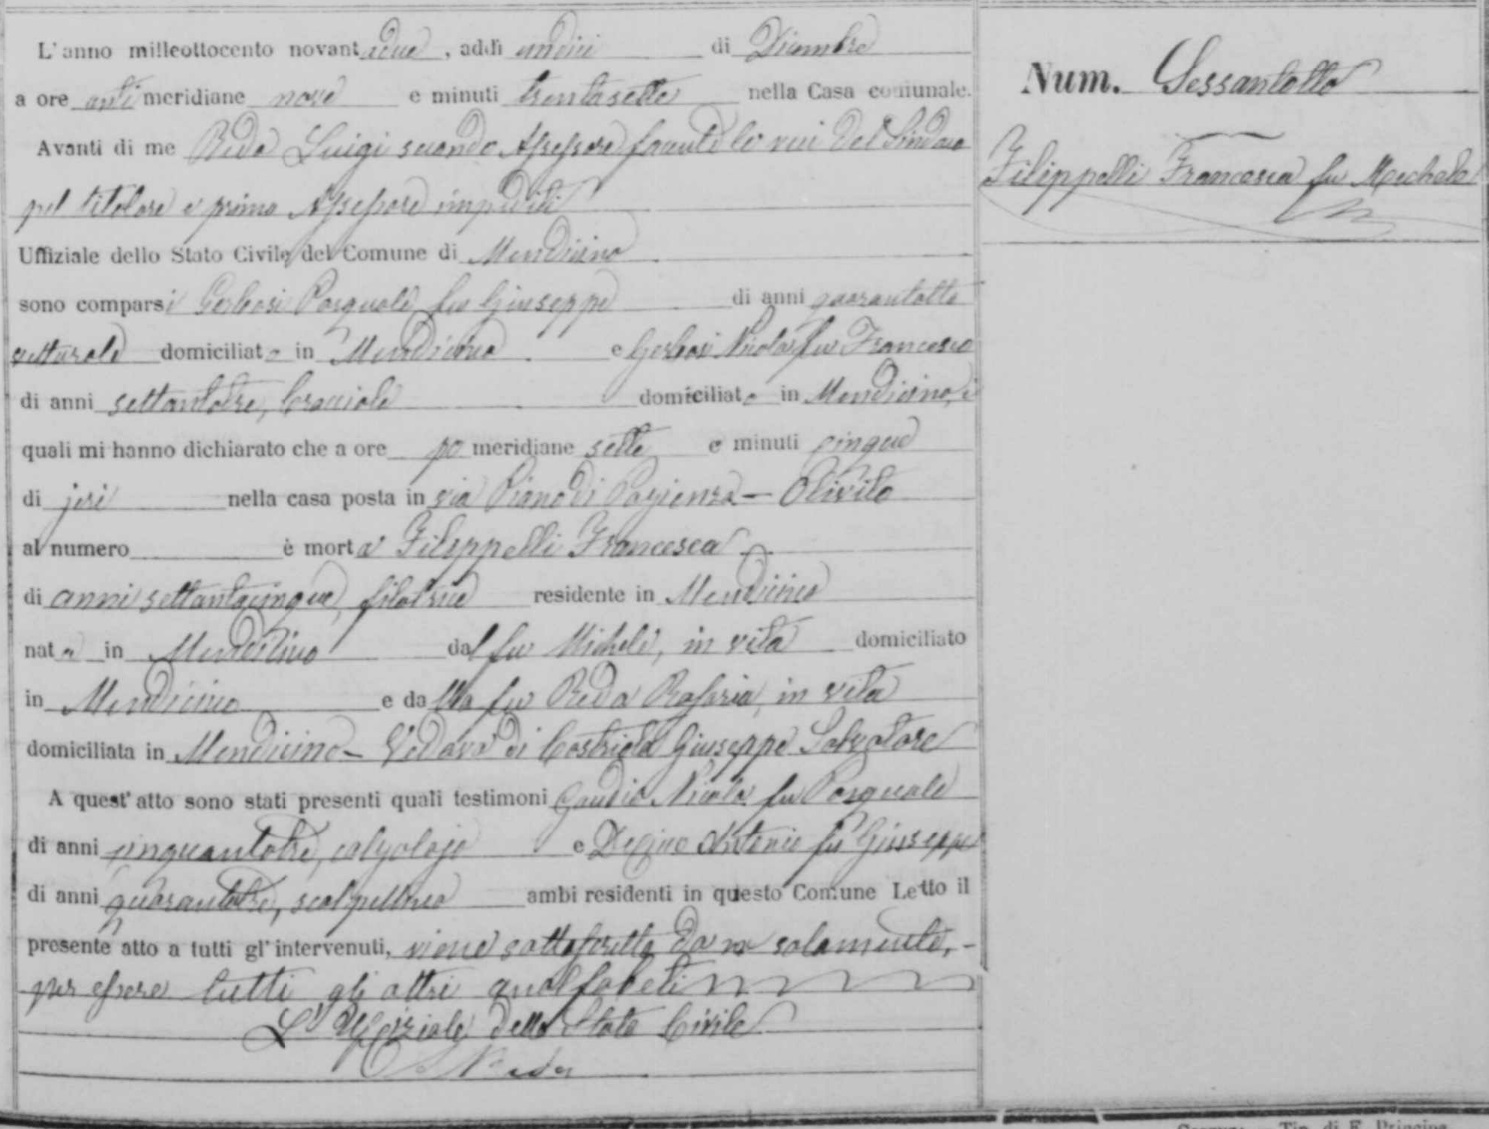 L'anno milleottocento novantadue, addì undici di Dicembre
a ore anti meridiane nove e minuti trentasette nella Casa comunale.
Avanti di me Reda Luigi secondo Assessore facente le veci del Sindaco
pel titolare e primo Assessore impediti
Uffiziale dello Stato Civile del Comune di Mendicino
sono comparsi Gerbasi Pasquale fu Giuseppe di anni quarantotto
vetturale domiciliato in Mendicino e Gerbasi Nicola fu Francesco
di anni settantatre, bracciale domiciliato in Mendicino, i
quali mi hanno dichiarato che a ore po meridiane sette e minuti cinque
di jeri nella casa posta in via Piano di Pazienza - Olivito
al numero è morta Filippelli Francesca
di anni settantacinque, filatrice residente in Mendicino
nata in Mendicino dal fu Michele, in vita domiciliato
in Mendicino e dalla fu Reda Rosaria, in vita
domiciliata in Mendicino - Vedova di Giuseppe Salvatore
A quest'atto sono stati presenti quali testimoni Gaudio Nicola fu Pasquale
di anni cinquantatre, calzolajo e Antonio fu Giuseppe
di anni quarantatre, scalpellino ambi residenti in questo Comune Letto il
presente atto a tutti gl'intervenuti, viene sottoscritto da me solamente, -
per essere tutti gli altri analfabeti
L'Uffiziale dello Stato Civile
L Reda
Num. Sessantotto
Filippelli Francesca fu Michele
Tip. di F. Principe